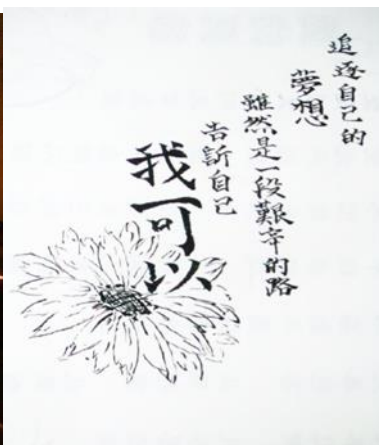 追逐自己的
夢想
雖然是一段艱辛的路
告訴自己
我可以